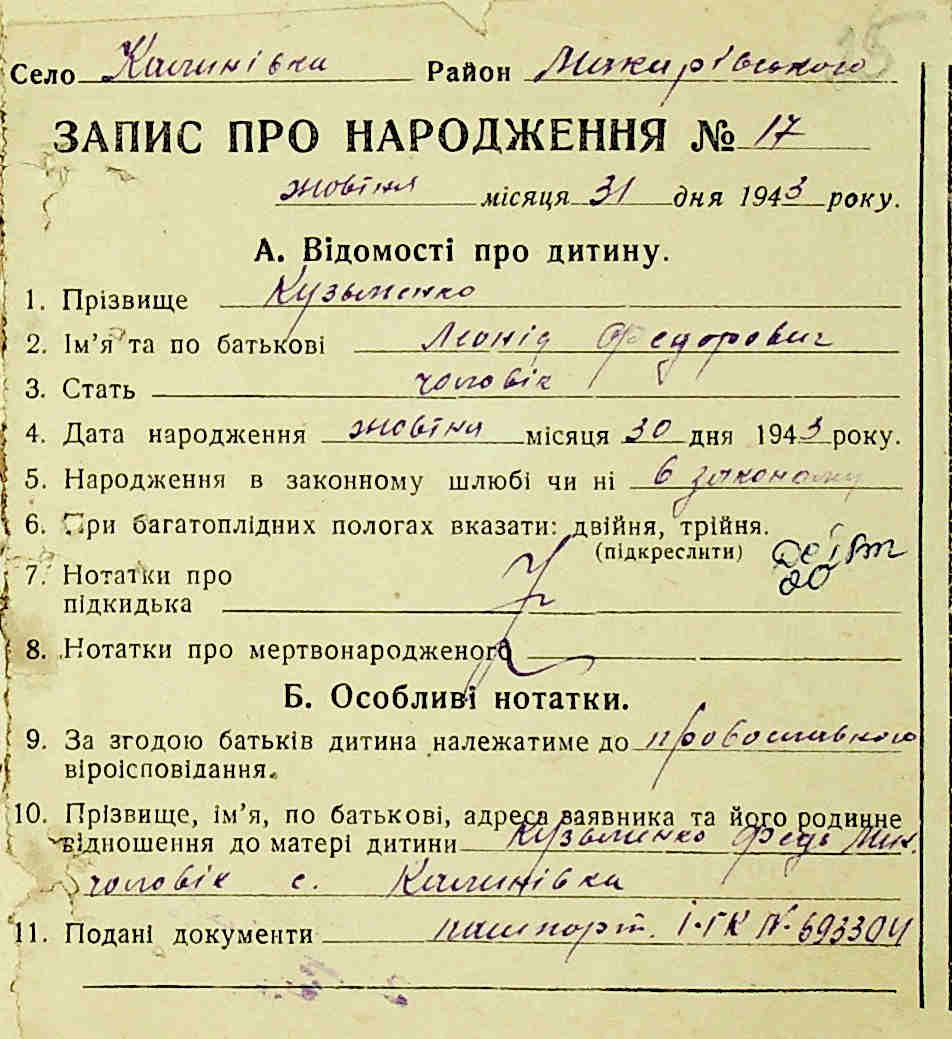 Село Калинівка Район Макарівського
ЗАПИС ПРО НАРОДЖЕННЯ № 17
жовтня місяця 31 дня 1943 року.
А. Відомості про дитину.
1. Прізвище Кузьменко
2. Ім’я та по батькові Леонід Федорович
3. Стать чоловік
4. Дата народження жовтня місяця 30 дня 1943 року.
5. Народження в законному шлюбі чи ні в законому
6. При багатоплідних пологах вказати: двійня, трійня.
(підкреслити)
20
7. Нотатки про
підкидька
8. Нотатки про мертвонародженого
Б. Особливі нотатки.
9. За згодою батьків дитина належатиме до православного
віроісповідання.
10. Прізвище, ім’я, по батькові, адреса заявника та його родинне
відношення до матері дитини Кузьменко Федь Мик.
чоловік с. Калинівка
11. Подані документи пашпорт. І-ГК № 693304